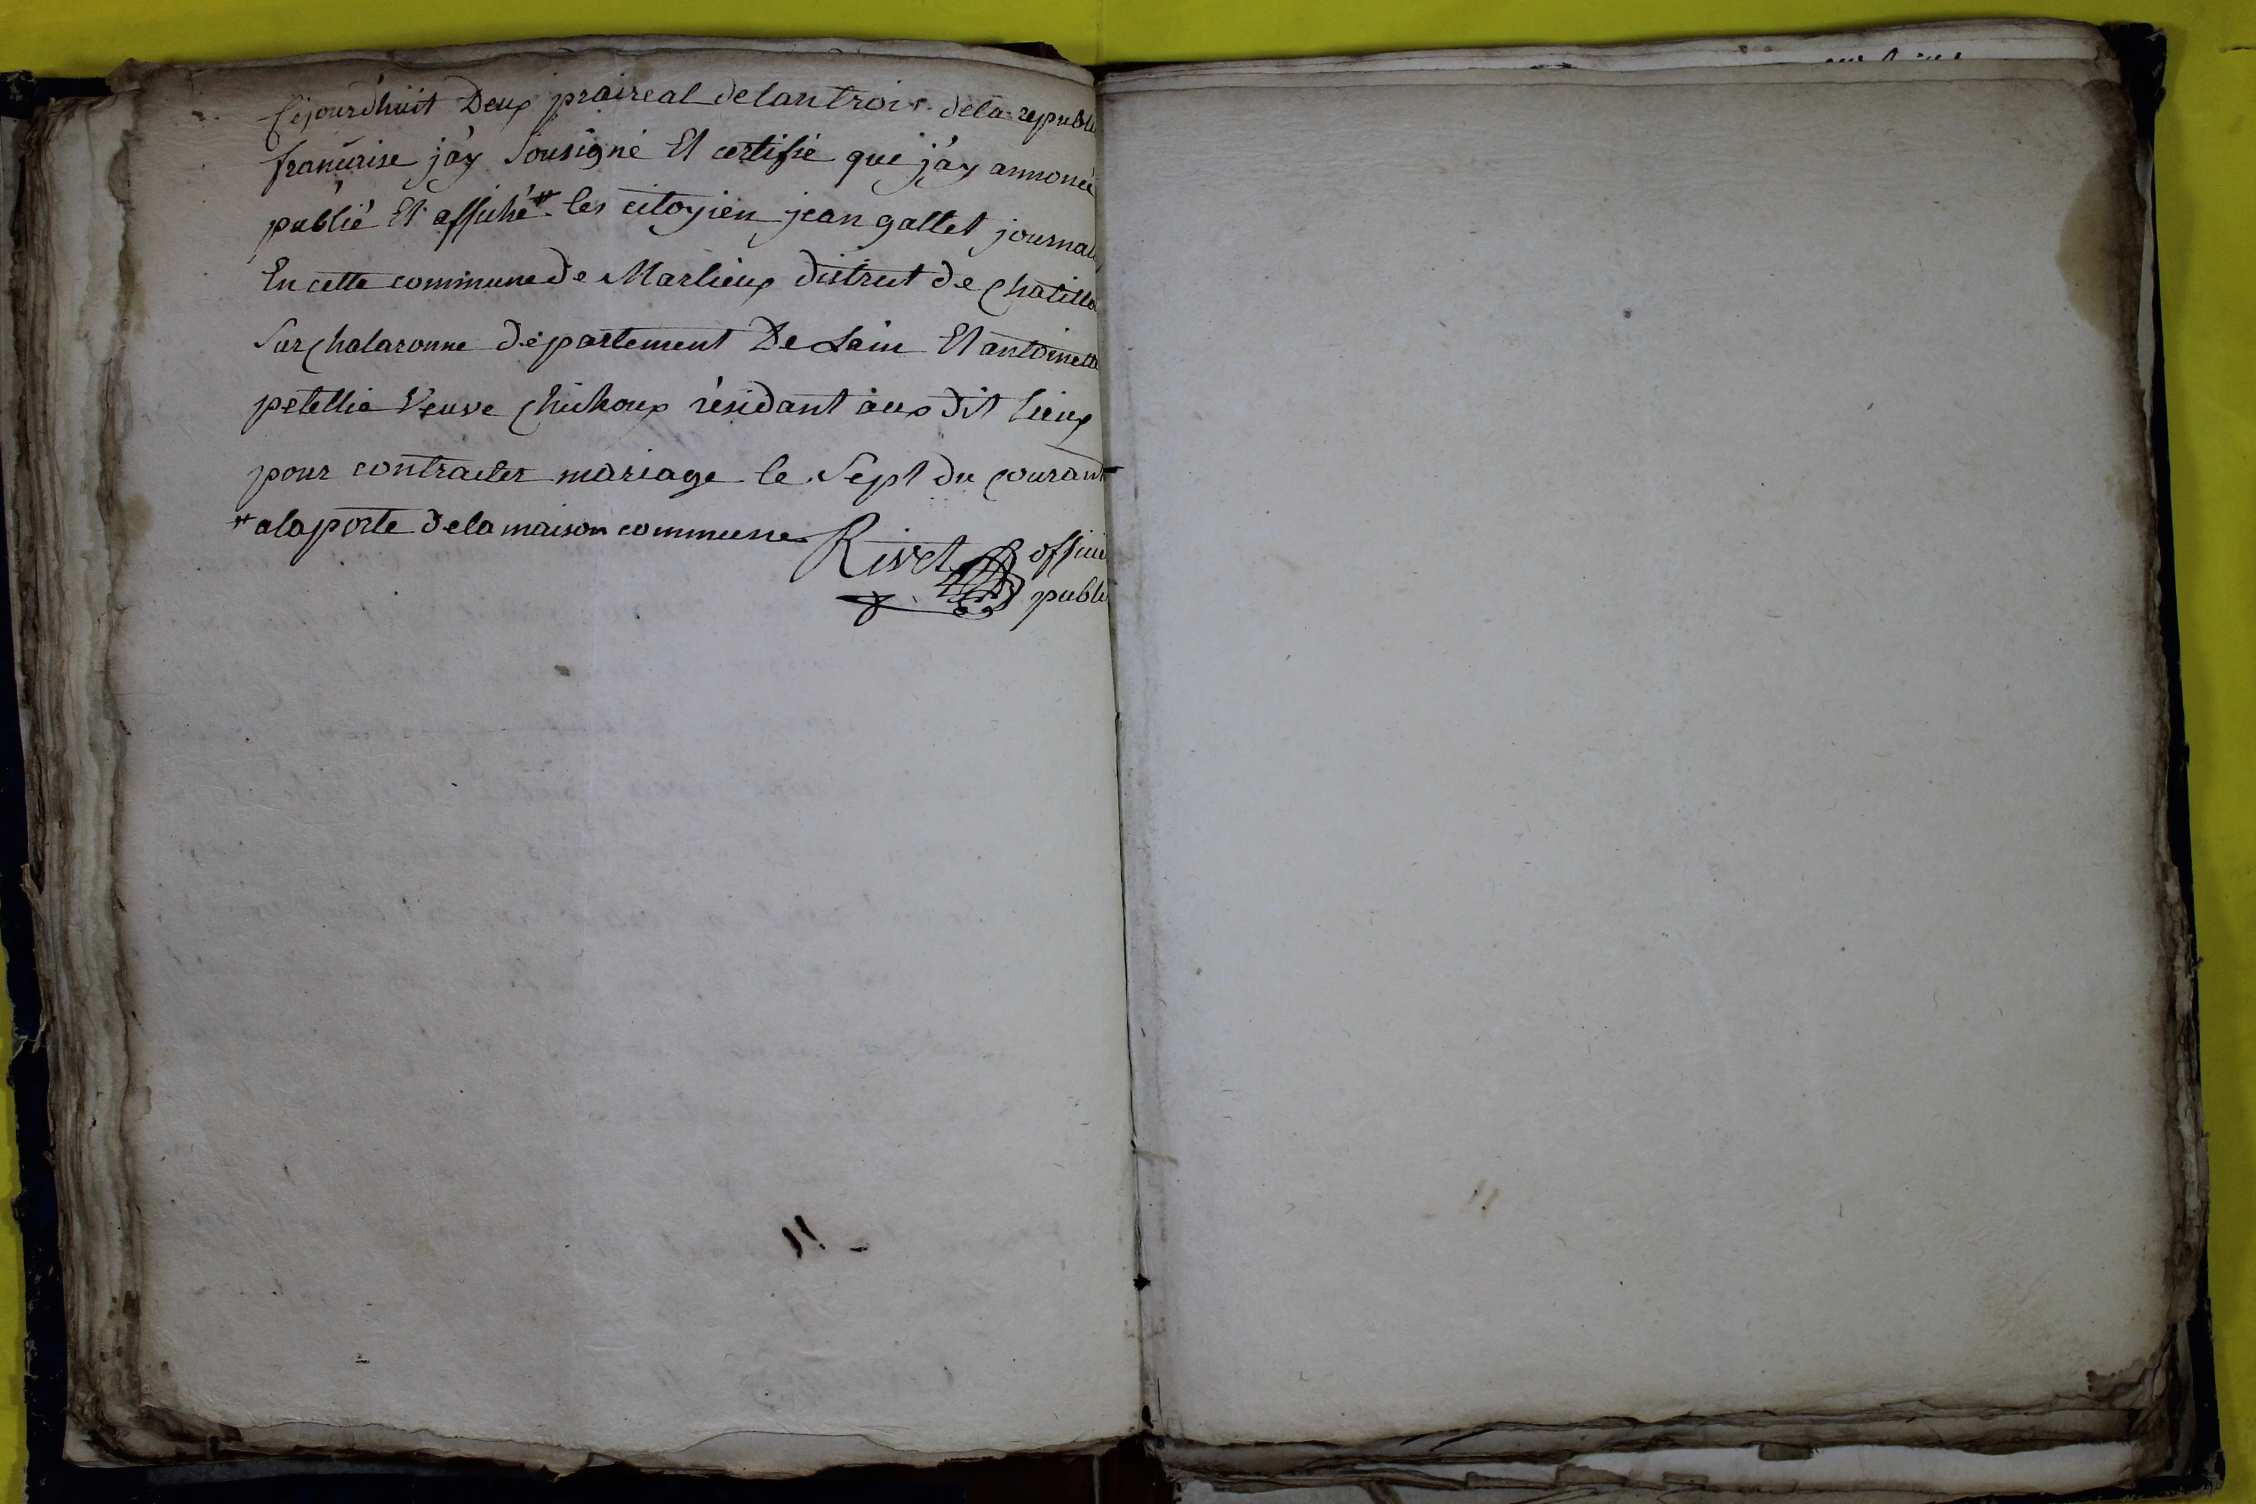 Cejourdhuit Deux praireal delantrois dela republi
francaise j'ay Sousigné Et certifié que j'ay annoncé
publié Et affiché # les citoyien jean gallet journal
En cette commune de Marlieux district de Chatillo
Sur Chalaronne département De Lain Et antoinette
petellia Veuve Chichoux résidant aux dit lieux
pour contracter mariage le Sept du Courant
# alaporte dela maison commune Rivet officie
publi